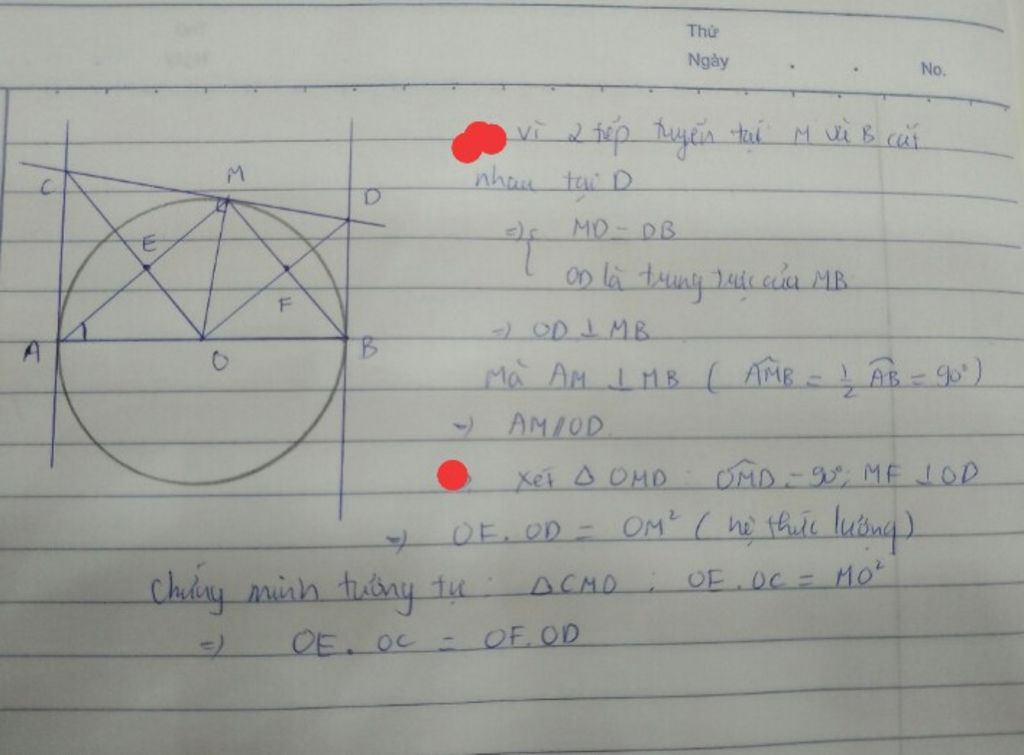 Thứ
Ngày . . No.
C M D
E
F
A O B
Vì 2 tiếp tuyến tại M và B cắt
nhau tại D
=> { MD = DB
OD là trung trực của MB
=> OD ⊥ MB
Mà AM ⊥ MB ( AMB = 1/2 AB = 90° )
=> AM // OD
Xét Δ OMD : OMD = 90°; MF ⊥ OD
=> OF. OD = OM² ( hệ thức lượng )
Chứng minh tương tự : ΔCMO : OE . OC = MO²
=> OE . OC = OF. OD